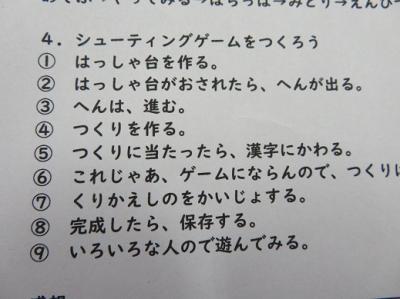 ４．シューティングゲームをつくろう
① はっしゃ台を作る。
② はっしゃ台がおされたら、へんが出る。
③ へんは、進む。
④ つくりを作る。
⑤ つくりに当たったら、漢字にかわる。
⑥ これじゃあ、ゲームにならんので、つくりに
⑦ くりかえしのをかいじょする。
⑧ 完成したら、保存する。
⑨ いろいろな人ので遊んでみる。